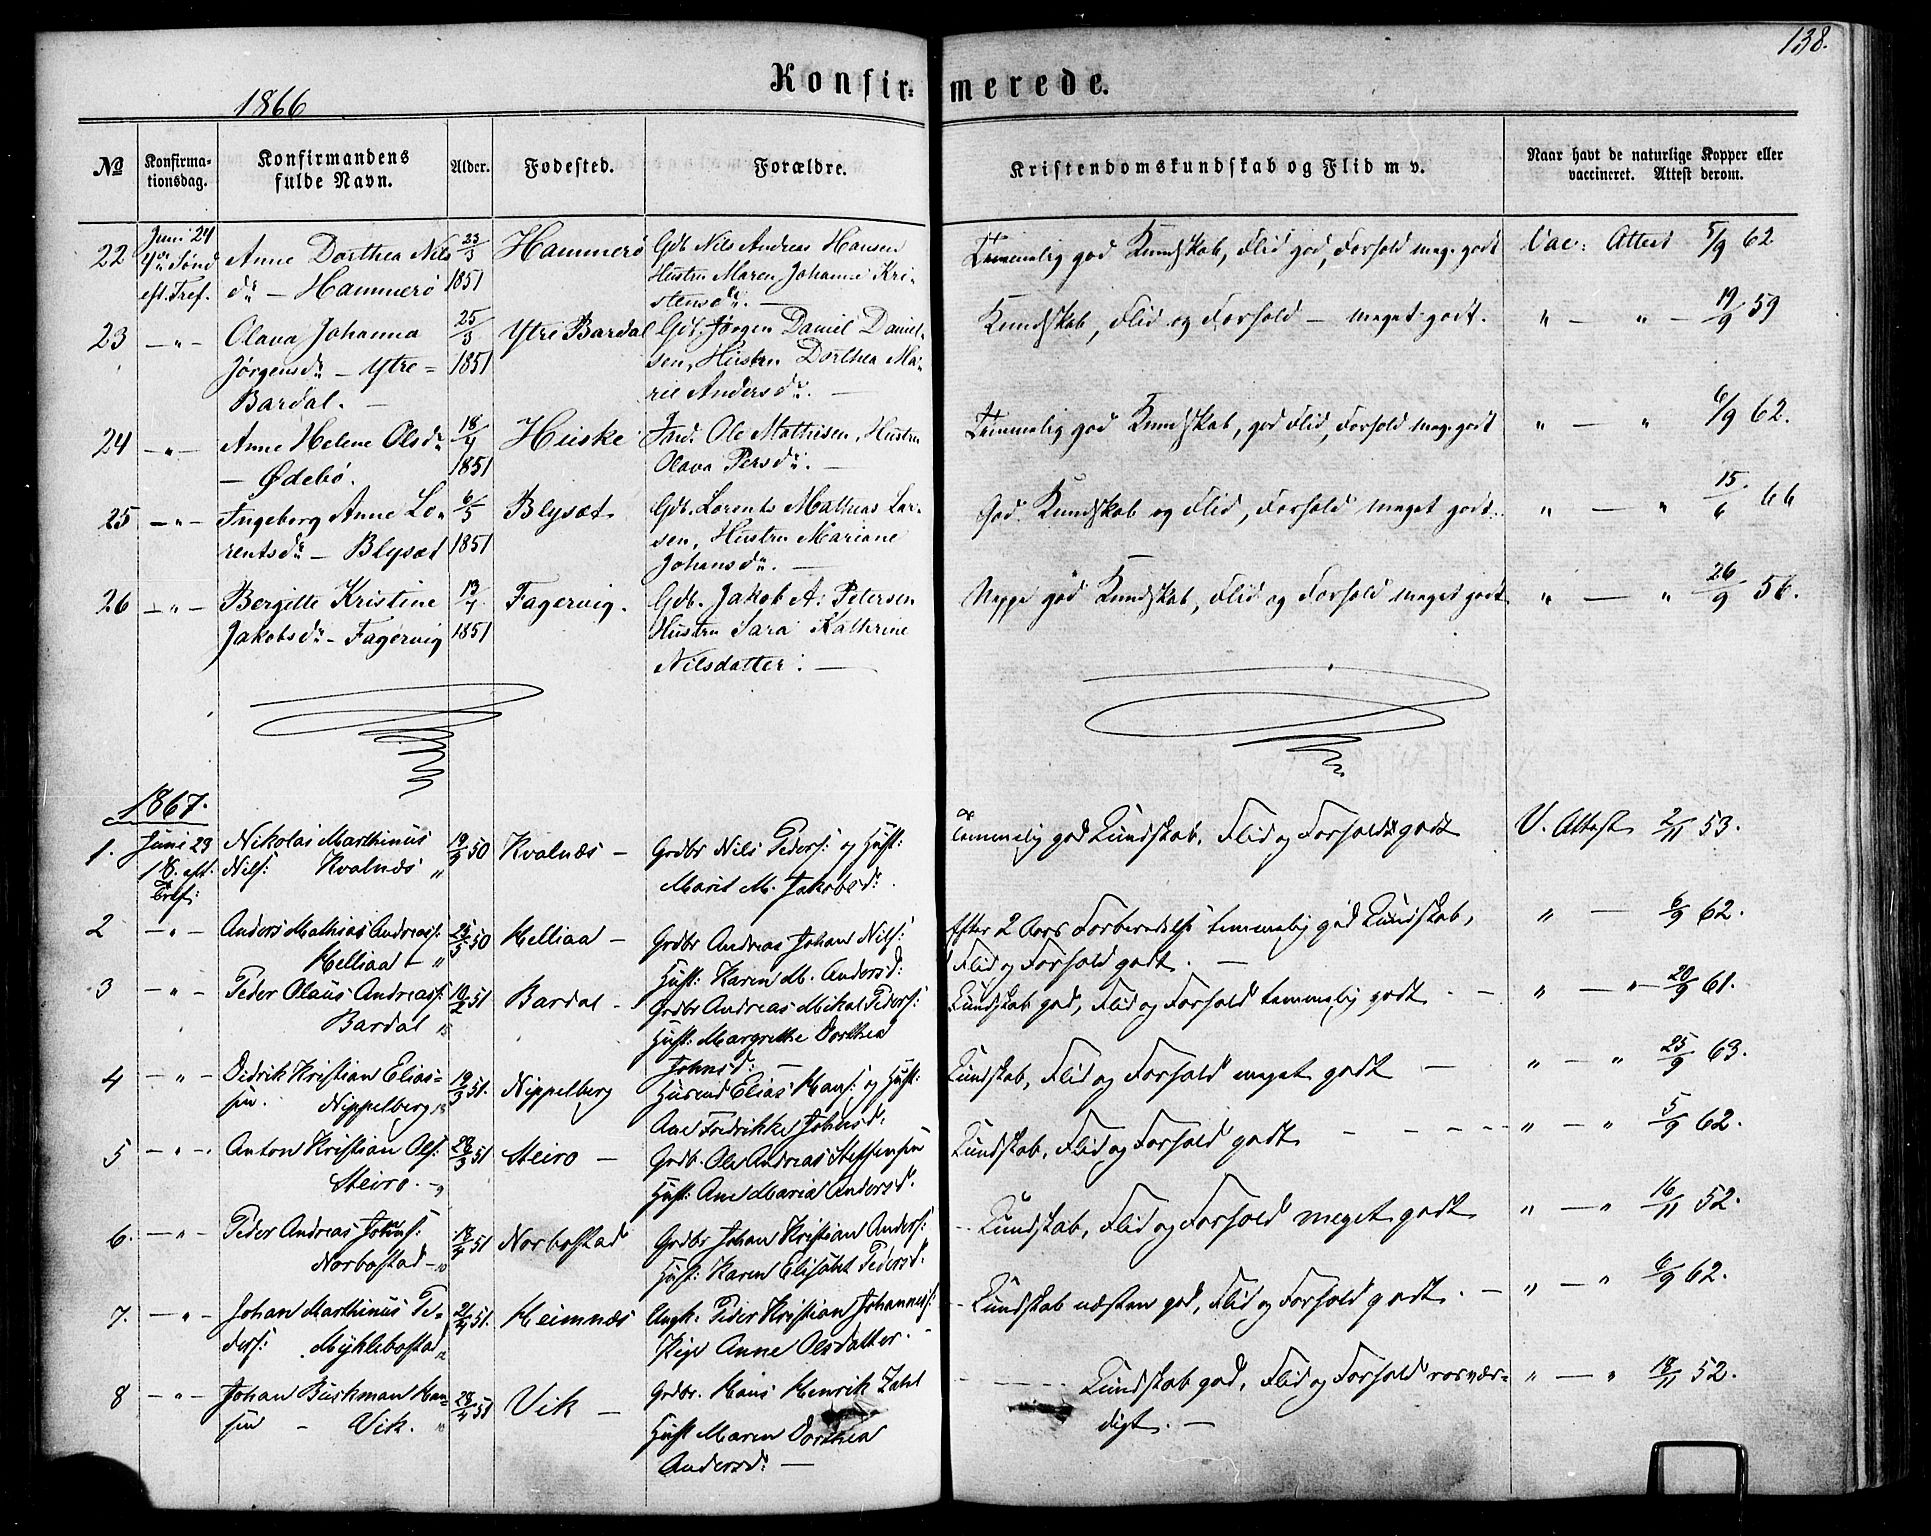 138.
Konfir- merede.
1866
No Konfirma- tionsdag. Konfirmandens fulde Navn. Alder. Fødested. Forældre. Kristendomskundskab og Flid m v. Naar havt de naturlige Kopper eller vaccineret. Attest derom.
22 Juni 24 4de Sønd eft. Tref. Anne Dorthea Nils dr – Hammerö 23/3 1851 Hammerö Gdb. Nils Andreas Hansen Hustru Maren Johanne Kri- stensdr. — Temmelig god Kundskab, Flid god, Forhold meg. godt Vac: Attest 5/9 62
23 – " – Olava Johanna Jørgensdr – Ytre- Bardal. – 25/3 1851 Ytre Bardal Gdb. Jörgen Daniel Daniel- sen, Hustru Dorthea Ma- rie Andersdr. — Kundskab, Flid og Forhold – meget godt. " – " – 19/9 59
24 – " – Anne Helene Olsdr – Ødebö. 18/4 1851 Huske Ole Mathisen, Hustru Olava Persdr. — Temmelig god Kundskab, god Flid, Forhold meg. godt " – " 6/9 62.
25 – " – Ingeborg Anne Lo- rentsdr – Blysæt 6/5 1851 Blysæt Gdb. Lorents Mathias Lar- sen, Hustru Mariane Johansdr. — God Kundskab og Flid, Forhold meget godt. " – " 15/6 66
26 – " – Bergette Kristine Jakobsdr – Fagervig 13/4 1851 Fagervig. Gdb. Jakob A. Petersen Hustru Sara Kathrine Nilsdatter. — Neppe god Kundskab, Flid og Forhold meget godt " – " 26/9 56.
1867.
1. Juni 23 eft. Tref: Nikolai Marthinus Nils: Kvalnæs " 19/9 50 Kvalnæs – Grdbr Nils Peders: og Hust: Marit M. Jakobsd: Temmelig god Kundskab. Flid og Forhold godt V. Attest 2/11 53.
2 – " – Anders Mathias Andreas: Helliaa – " 25/3 50 Helliaa – Grdbr Andreas Johan Nils: Hust: Karen M. Andersd: Efter 2 Aars Forberedelse temmelig god Kundskab, Flid og Forhold godt. — " – 6/9 62.
3 – " – Peder Olaus Andreas: Bardal " 10/2 51 Bardal – Grdbr Andreas Mikal Peders: Hust: Margrethe Dorthea Johnsd: — Kundskab god, Flid og Forhold temmelig godt – " – " – 20/9 61.
4 – " – Didrik Kristian Elias- sen. Nippelberg " 19/3 51. Nippelberg Husmd Elias Hans: og Hust: Ane Fredrikke Johnsd. Kundskab, Flid og Forhold meget godt – " – " 25/9 63.
5 – " – Anton Kristian Ols: Steiro. – " 28/3 51 Steiro – Grdb. Ole Andreas Steffensen Hust: Ane Maria Andersd. Kundskab, Flid og Forhold godt – – – – – " – " 5/9 62.
6. – " – Peder Andreas Johns: Norbostad – " 18/4 51 Norbostad Grdbr Johan Kristian Anders: Hust: Karen Elisabet Pedersd. Kundskab, Flid og Forhold meget godt " – " 16/11 52.
7. – " – Johan Marthinus Pe- ders: Myklebostad " 21/4 51. Heimnæs Ungk: Peder Kristian Johannes: Pige Anne Olsdatter. – Kundskab næsten god, Flid og Forhold godt. – " – " 6/9 62.
8 – " – Johan Buckman Han- sen – Vik. " 28/4 51 Vik – Grdbr. Hans Henrik Zahl Hust Maren Dorthea Andersd: — Kundskab god, Flid og Forhold rosvær- digt. — " – " 18/11 52.